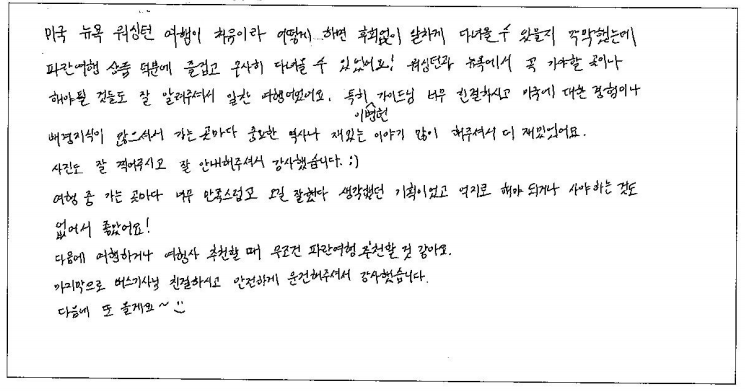 미국 뉴욕 워싱턴 여행이 처음이라 어떻게 하면 후회없이 알차게 다녀올 수 있을지 막막했는데
파란여행 상품 덕분에 즐겁고 무사히 다녀올 수 있었어요! 워싱턴과 뉴욕에서 꼭 가야할 곳이나
해야될 것들도 잘 알려주셔서 알찬 여행이었어요. 특히 이병헌 가이드님 너무 친절하시고 미국에 대한 경험이나
배경지식이 많으셔서 가는 곳마다 중요한 역사나 재밌는 이야기 많이 해주셔서 더 재밌었어요.
사진도 잘 찍어주시고 잘 안내해주셔서 감사했습니다. :)
여행 중 가는 곳마다 너무 만족스럽고 오길 잘했다 생각했던 기획이었고 억지로 해야 되거나 사야 하는 것도
없어서 좋았어요!
다음에 여행하거나 여행사 추천할 때 무조건 파란여행 추천할 것 같아요.
마지막으로 버스기사님 친절하시고 안전하게 운전해주셔서 감사했습니다.
다음에 또 올게요~